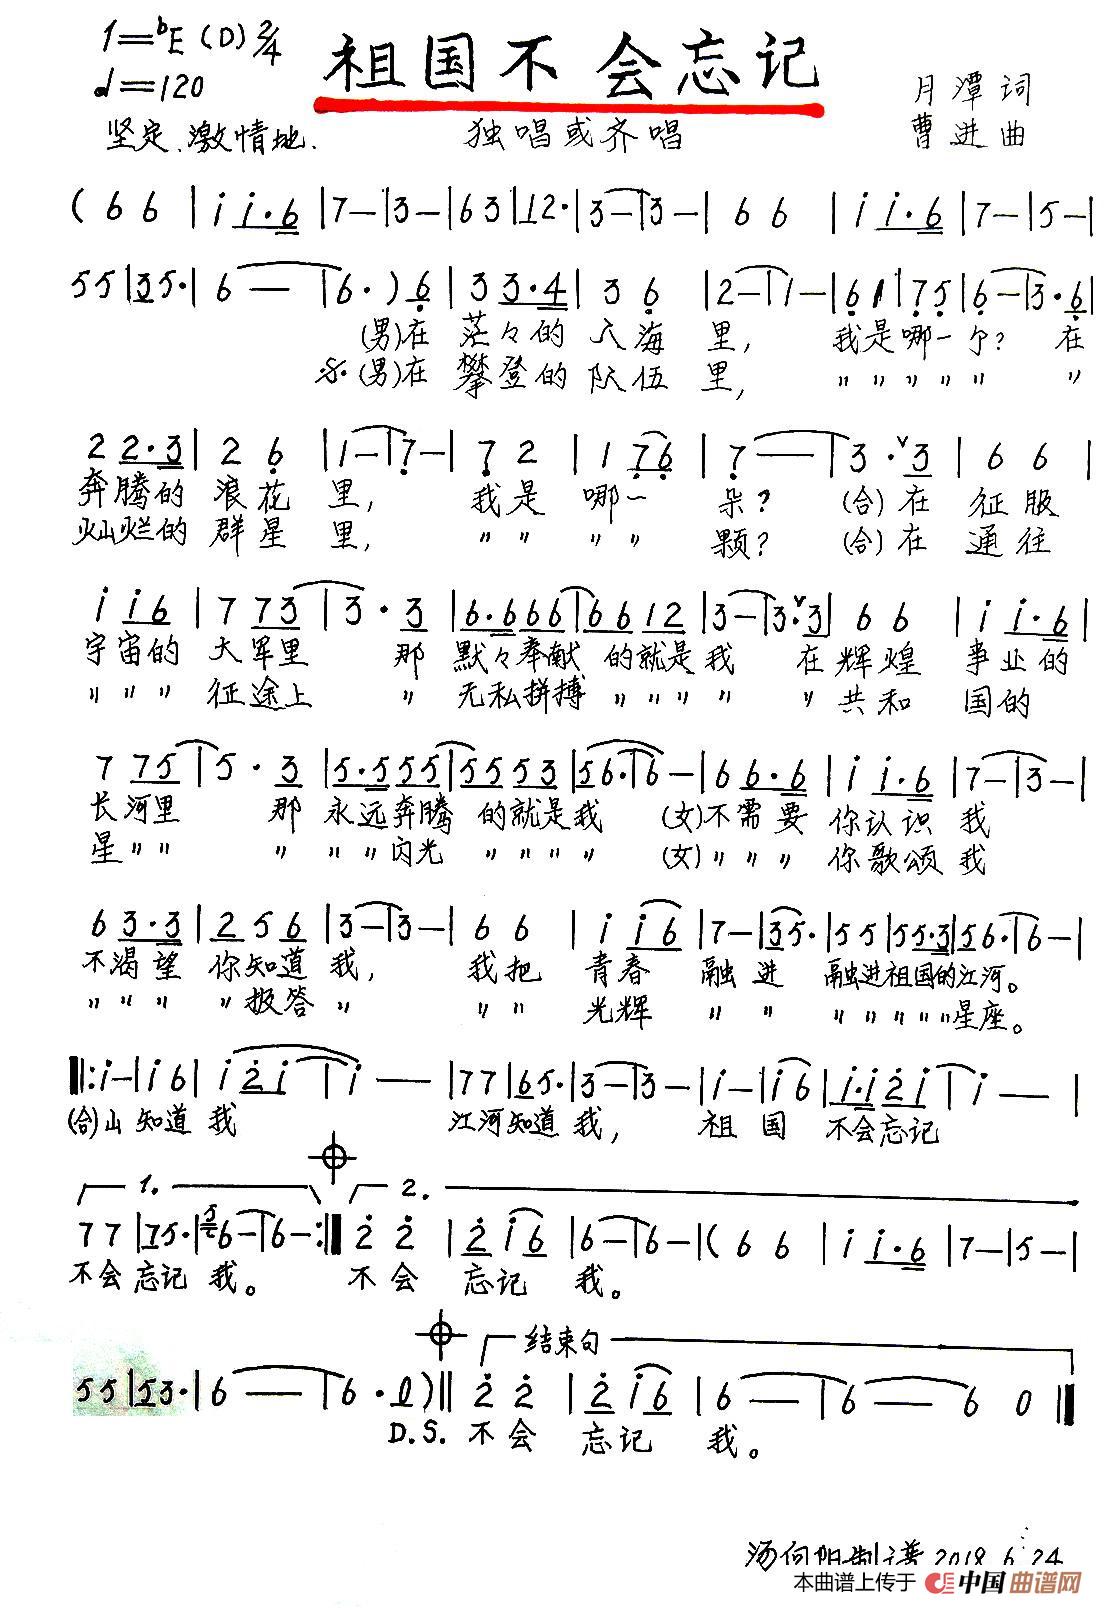 1=ᵇE (D) 2/4
祖国不会忘记
♩=120
月潭词
坚定、激情地.
独唱或齐唱
曹进曲
( 6 6 | i i·6 | 7— | 3— | 6 3 | 12· | 3— | 3— | 6 6 | i i·6 | 7— | 5— |
55 | 35· | 6 — | 6· ) 6 | 3 3·4 | 3 6 | 2— | 1— | 6 1 | 75 | 6— | 3· 6 |
(男)在 茫々的 人海 里, 我是哪一个? 在
(男)在 攀登的 队伍 里, 〃 〃 〃 〃 〃 〃
2 2·3 | 2 6 | 1— | 7— | 7 2 | 1 76 | 7 — | 3· ∨3 | 6 6 |
奔腾的 浪花 里, 我是 哪一 朵? (合)在 征服
灿烂的 群星 里, 〃 〃 〃 〃 颗? (合)在 通往
i i6 | 7 73 | 3 · 3 | 6·666 | 6612 | 3— | 3·∨3 | 6 6 | i i·6 |
宇宙的 大军里 那 默々奉献 的就是我 在辉煌 事业的
〃 〃 〃 征途上 〃 无私拼搏 〃 〃 〃 〃 〃 共和 国的
7 75 | 5 · 3 | 5·555 | 5553 | 56· | 6— | 6 6·6 | i i·6 | 7— | 3— |
长河里 那 永远奔腾 的就是我 (女)不需要 你认识 我
星〃 〃 〃 〃 〃闪光 〃 〃 〃 〃 (女)〃 〃 〃 你歌颂 我
6 3·3 | 2 5 6 | 3— | 3— | 6 6 | i i6 | 7— | 35· | 55 | 55·3 | 56· | 6— |
不渴望 你知道 我, 我把 青春 融 进 融进祖国的江河。
〃 〃 〃 〃报答 〃 〃 〃 光辉 〃 〃 〃 〃 〃 〃 〃星座。
‖: i— | i 6 | i 2i | i — | 77 | 65· | 3— | 3— | i— | i6 | i·i2i | i — |
(合)山 知道 我 江河知道 我, 祖 国 不会忘记
1. 2.
77 | 75· | 6— | 6— :‖ 2 2 | 2 i6 | 6— | 6— | ( 6 6 | i i·6 | 7— | 5— |
不会 忘记 我。 不 会 忘记 我。
结束句
55 | 53· | 6 — | 6 · 0 ) ‖ 2 2 | 2 i6 | 6 — | 6 — | 6 0 ‖
D.S. 不 会 忘记 我。
汤向阳制谱 2018.6.24
本曲谱上传于 中国曲谱网